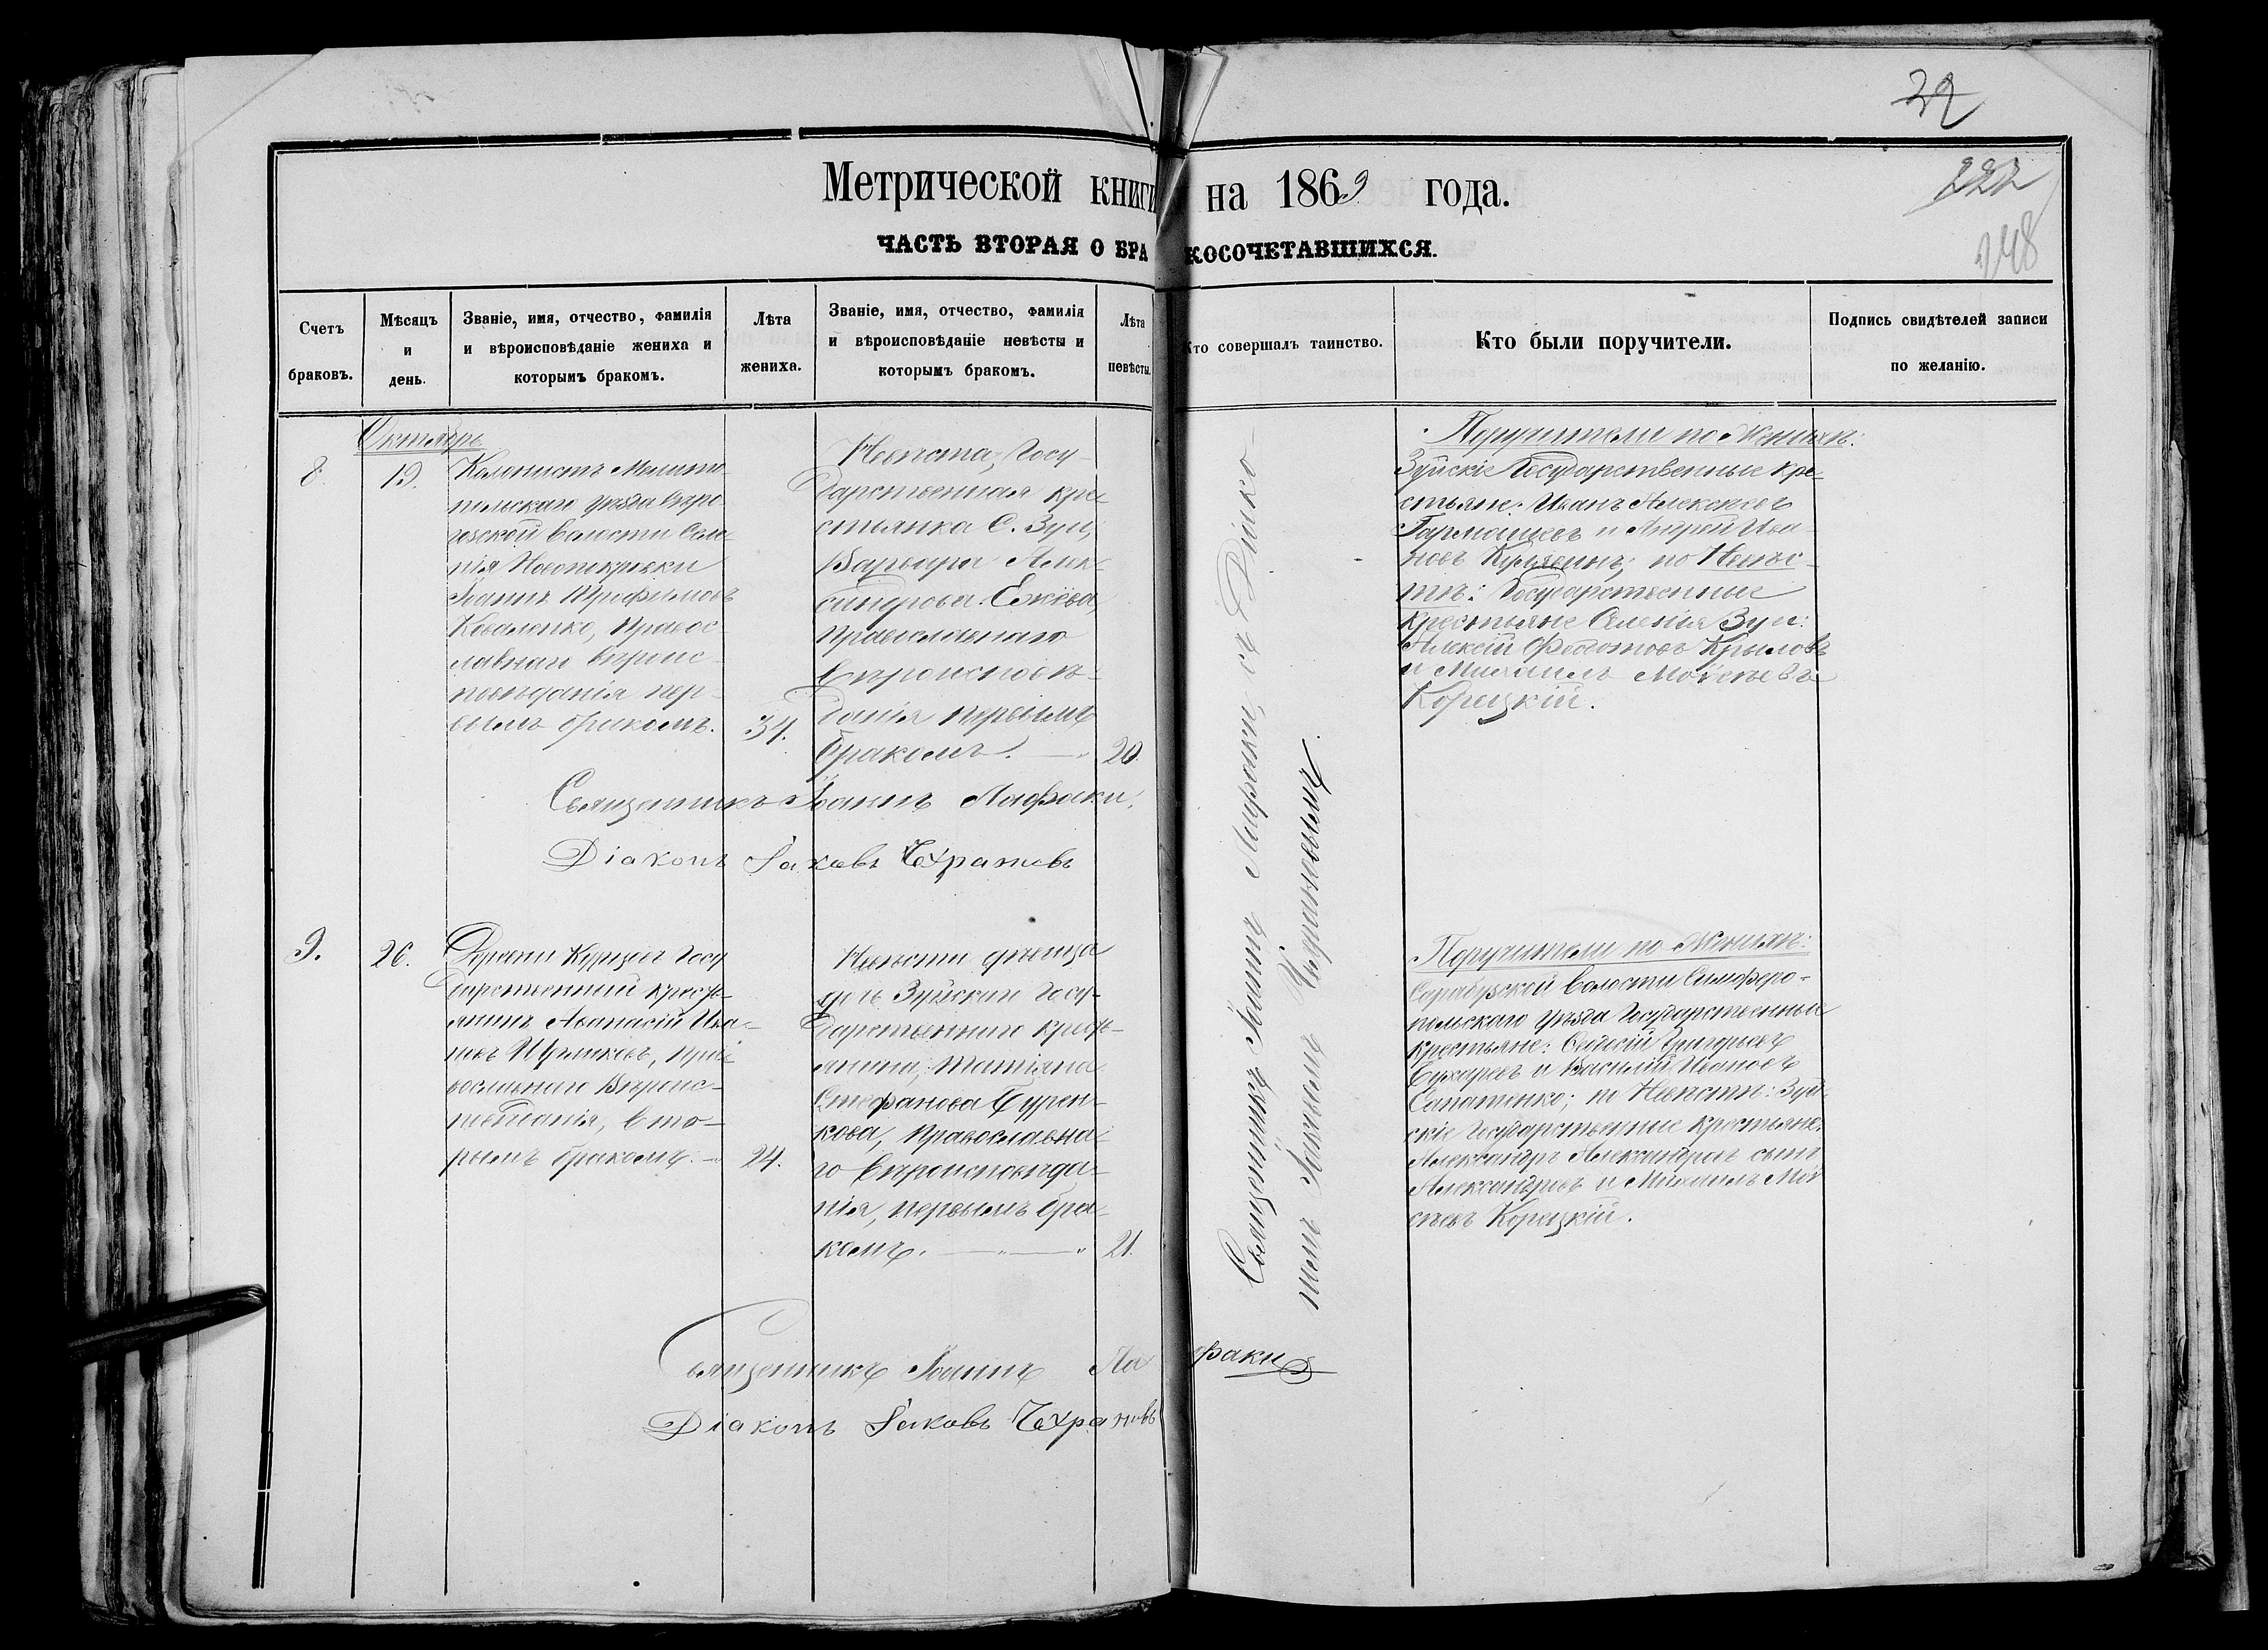 32
222
248
Метрической книги на 1869 года.
ЧАСТЬ ВТОРАЯ О БРАКОСОЧЕТАВШИХСЯ.
Счетъ браковъ.
Мѣсяцъ и день.
Званіе, имя, отчество, фамилія и вѣроисповѣданіе жениха и которымъ бракомъ.
Лѣта жениха.
Званіе, имя, отчество, фамилія и вѣроисповѣданіе невѣсты и которымъ бракомъ.
Лѣта невѣсты.
Кто совершалъ таинство.
Кто были поручители.
Подпись свидѣтелей записи по желанію.
Октябрь
8.
19.
Колонистъ Мелито-
польскаго уѣзда
волости Селе-
нія Новопокровки
Іоаннъ Трофимовъ
Коваленко, Правос-
лавнаго вѣроис-
повѣданія пер-
вымъ бракомъ.
34.
Невѣста, Госу-
дарственная кре-
стьянка С. Зуи,
Варвара Алек-
сандрова Ежева,
Православнаго
вѣроисповѣ-
данія первымъ
бракомъ.
20.
Священникъ Іоаннъ Лафаки,
Діаконъ Іаковъ
Священникъ Іоаннъ Лафаки, съ Діако-
номъ Іаковомъ
Поручители по Женихѣ:
Зуйскіе Государственные кре-
стьяне: Иванъ Алексѣевъ
Гармашевъ и Андрей Ива-
новъ по Невѣс-
тѣ: Государственные
крестьяне Селенія Зуи:
Алексій Федотовъ Крыловъ
и Михаилъ Моѵсеевъ
Корецкій.
9.
26.
Деревни Курцовъ Госу-
дарственный кресть-
янинъ Аѳанасій Ива-
новъ Пра-
вославнаго Вѣроис-
повѣданія, вто-
рымъ бракомъ.
24.
Невѣста дѣвица
дочь Зуйскаго Госу-
дарственнаго кресть-
янина, Татіана
Стефанова Бурен-
кова, Православна-
го вѣроисповѣда-
нія, первымъ бра-
комъ.
21.
Поручители по Женихѣ:
Сарабузской волости Симферо-
польскаго уѣзда Государственные
крестьяне: Григорьевъ
Сухаревъ и Василій Ивановъ
по Невѣстѣ: Зуй-
скіе Государственные крестьяне:
Александръ Александровъ сынъ
Александровъ и Михаилъ Моѵ-
сеевъ Корецкій.
Священникъ Іоаннъ Лафаки
Діаконъ Іаковъ